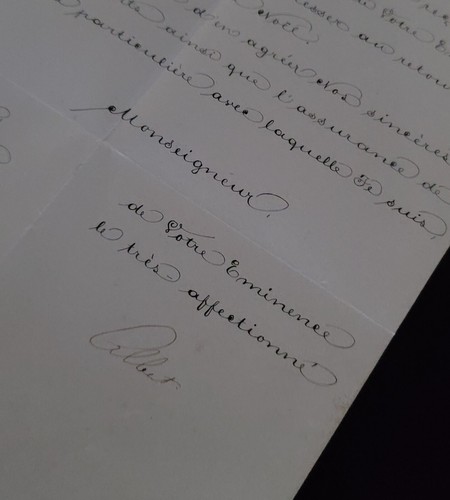 Votre E
esser au retour
Noël.
d'en agréer Nos sincères
ainsi que l'assurance de
particulière avec laquelle Je suis,
Monseigneur,
de Votre Eminence
le très-affectionné
Albert